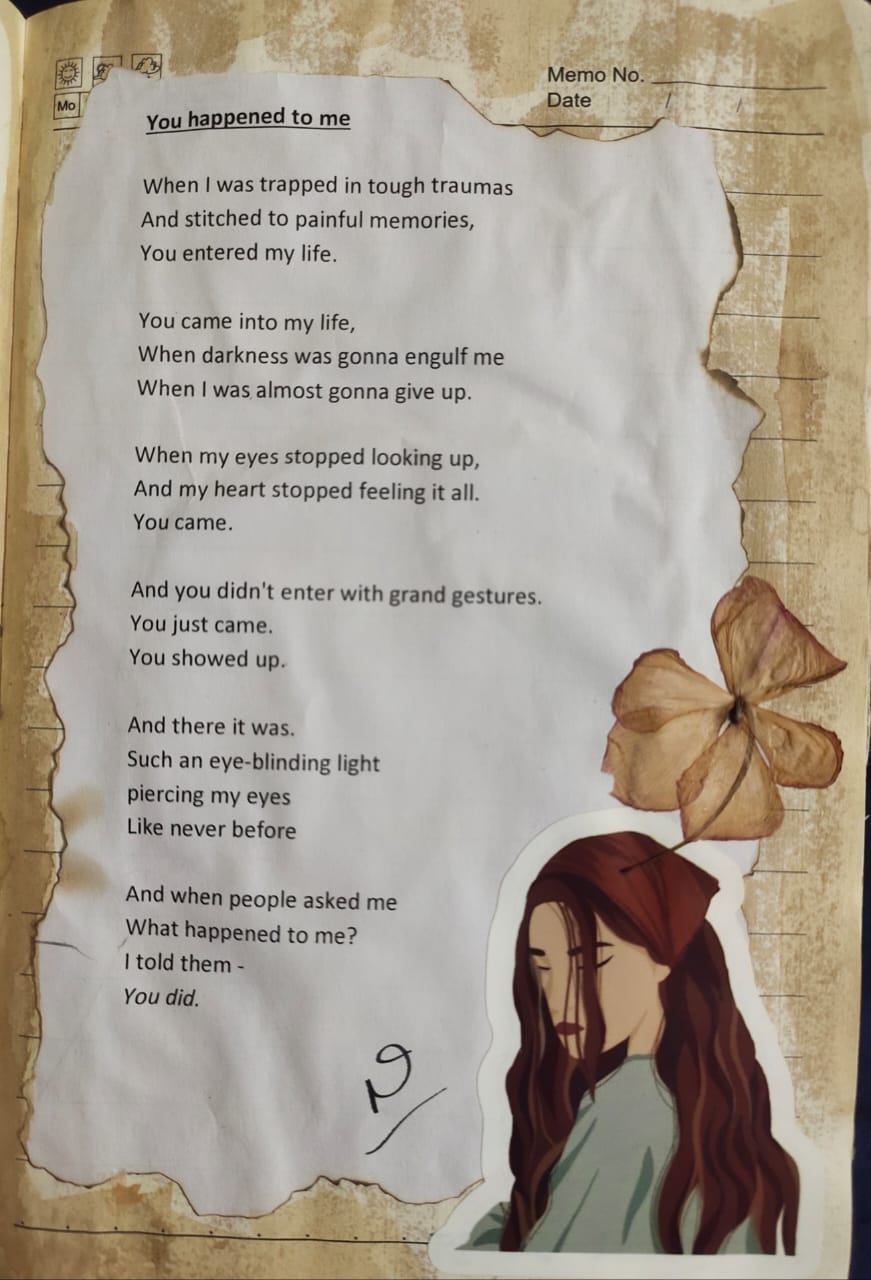 Memo No.
Date / /
Mo
You happened to me
When I was trapped in tough traumas
And stitched to painful memories,
You entered my life.
You came into my life,
When darkness was gonna engulf me
When I was almost gonna give up.
When my eyes stopped looking up,
And my heart stopped feeling it all.
You came.
And you didn't enter with grand gestures.
You just came.
You showed up.
And there it was.
Such an eye-blinding light
piercing my eyes
Like never before
And when people asked me
What happened to me?
I told them -
You did.